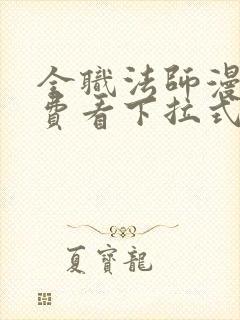 全職法師漫
費看下拉式
夏寶龍